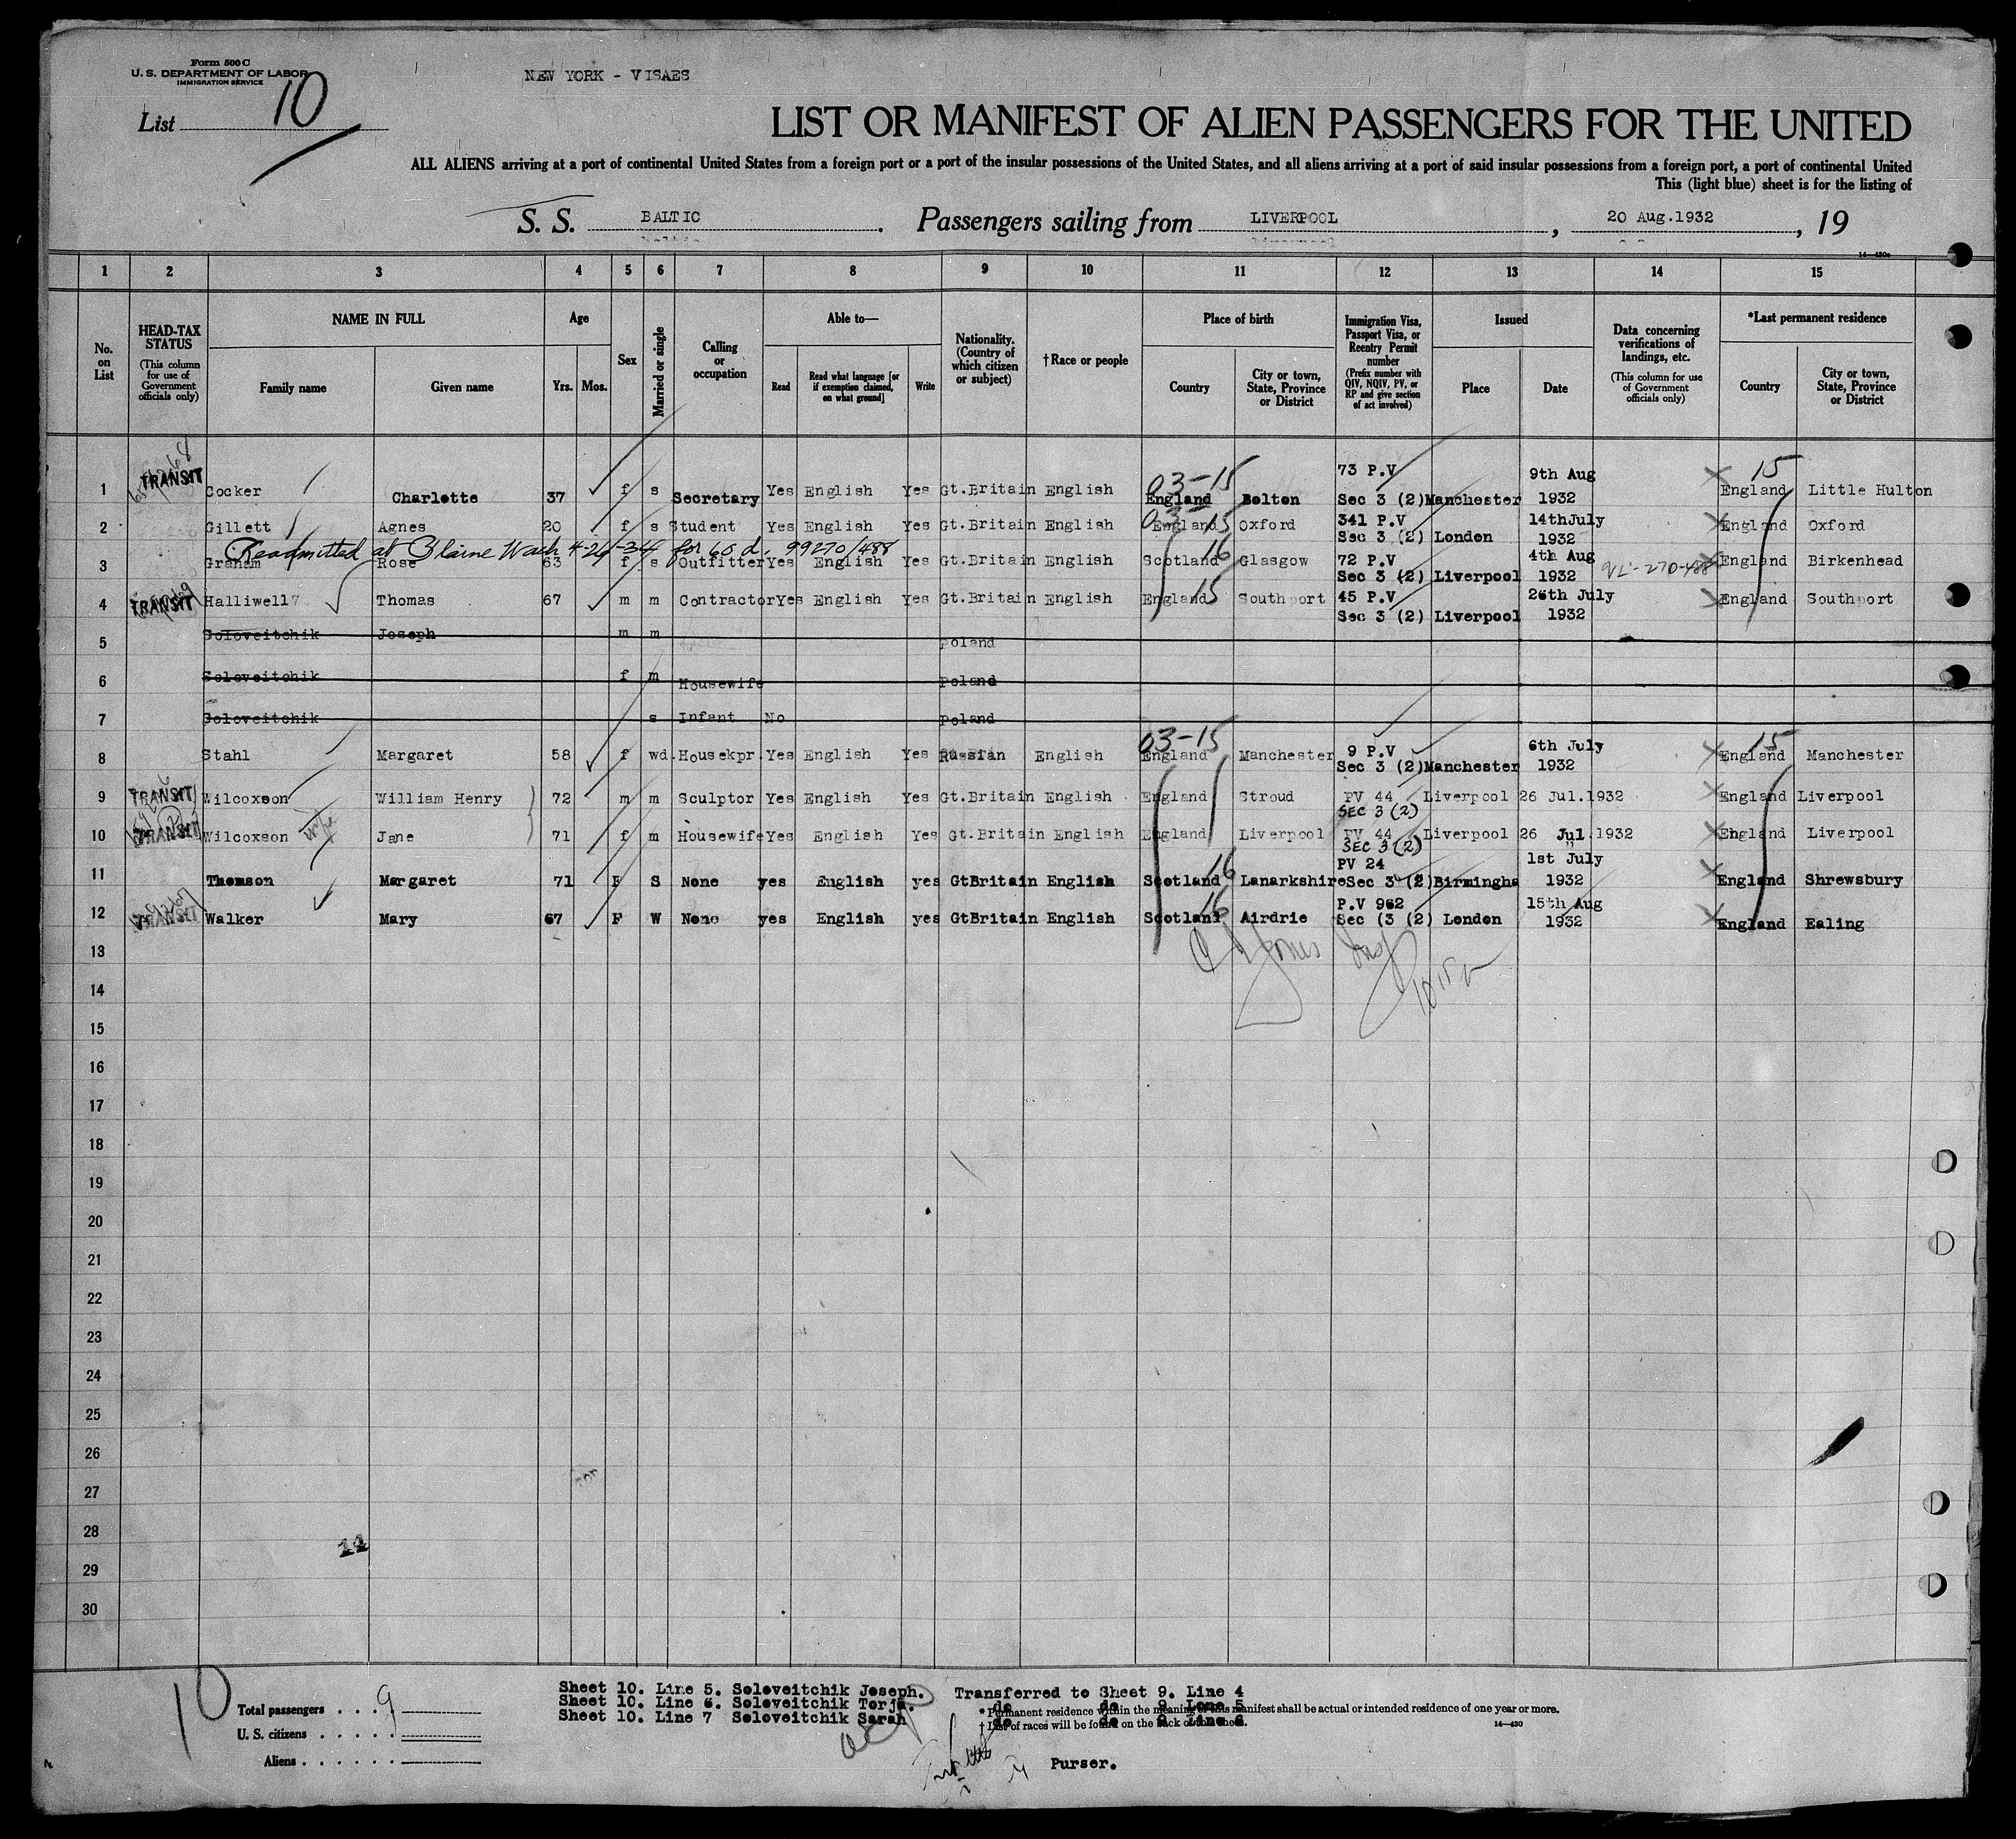 Form 500 C
U. S. DEPARTMENT OF LABOR
IMMIGRATION SERVICE
NEW YORK - VISAES
List 10
LIST OR MANIFEST OF ALIEN PASSENGERS FOR THE UNITED
ALL ALIENS arriving at a port of continental United States from a foreign port or a port of the insular possessions of the United States, and all aliens arriving at a port of said insular possessions from a foreign port, a port of continental United
This (light blue) sheet is for the listing of
S. S. BALTIC. Passengers sailing from LIVERPOOL, 20 Aug.1932, 19
1 2 3 4 5 6 7 8 9 10 11 12 13 14 15
No. on List
HEAD-TAX STATUS (This column for use of Government officials only)
NAME IN FULL Family name Given name
Age Yrs. Mos.
Sex
Married or single
Calling or occupation
Able to— Read Read what language [or if exemption claimed, on what ground] Write
Nationality. (Country of which citizen or subject)
†Race or people
Place of birth Country City or town, State, Province or District
Immigration Visa, Passport Visa, or Reentry Permit number (Prefix number with QIV, NQIV, PV, or RP and give section of act involved)
Issued Place Date
Data concerning verifications of landings, etc. (This column for use of Government officials only)
*Last permanent residence Country City or town, State, Province or District
03-15 73 P.V 9th Aug 15
1 TRANSIT Cocker Charlotte 37 f s Secretary Yes English Yes Gt.Britain English England Bolton Sec 3 (2) Manchester 1932 England Little Hulton
2 Gillett Agnes 20 f s Student Yes English Yes Gt.Britain English England 15 Oxford 341 P.V Sec 3 (2) London 14thJuly 1932 England Oxford
Readmitted at Blaine Wash 4-26-34 for 60 d. 99270/488
3 Graham Rose 63 f s Outfitter Yes English Yes Gt.Britain English Scotland 16 Glasgow 72 P.V Sec 3 (2) Liverpool 4th Aug 1932 England Birkenhead
4 TRANSIT Halliwell Thomas 67 m m Contractor Yes English Yes Gt.Britain English England 15 Southport 45 P.V Sec 3 (2) Liverpool 26th July 1932 England Southport
5 Soloveitchik Joseph m m Poland
6 Soloveitchik f m Housewife Poland
7 Soloveitchik s Infant No Poland
03-15 15
8 Stahl Margaret 58 f wd. Housekpr. Yes English Yes Russian English England Manchester 9 P.V Sec 3 (2) Manchester 6th July 1932 England Manchester
9 TRANSIT Wilcoxson William Henry 72 m m Sculptor Yes English Yes Gt.Britain English England Stroud PV 44 SEC 3 (2) Liverpool 26 Jul.1932 England Liverpool
10 TRANSIT Wilcoxson wife Jane 71 f m Housewife Yes English Yes Gt.Britain English England Liverpool PV 44 SEC 3 (2) Liverpool 26 Jul.1932 England Liverpool
11 Thomson Margaret 71 F S None yes English yes GtBritain English Scotland 16 Lanarkshire PV 24 Sec 3 (2) Birmingha 1st July 1932 England Shrewsbury
12 TRANSIT Walker Mary 67 F W None yes English yes GtBritain English Scotland 16 Airdrie P.V 962 Sec (3 (2) London 15th Aug 1932 England Ealing
13
14
15
16
17
18
19
20
21
22
23
24
25
26
27
28
29
30
14
10
Total passengers . . . 9
U. S. citizens . . . . .
Aliens . . . . . .
Sheet 10. Line 5. Soloveitchik Joseph. Transferred to Sheet 9. Line 4
Sheet 10. Line 6. Soloveitchik Torja. do do 9 Line 5
Sheet 10. Line 7 Soloveitchik Sarah do do 9. Line 6
* Permanent residence within the meaning of this manifest shall be actual or intended residence of one year or more.
† List of races will be found on the back of this sheet.
14—430
Purser.